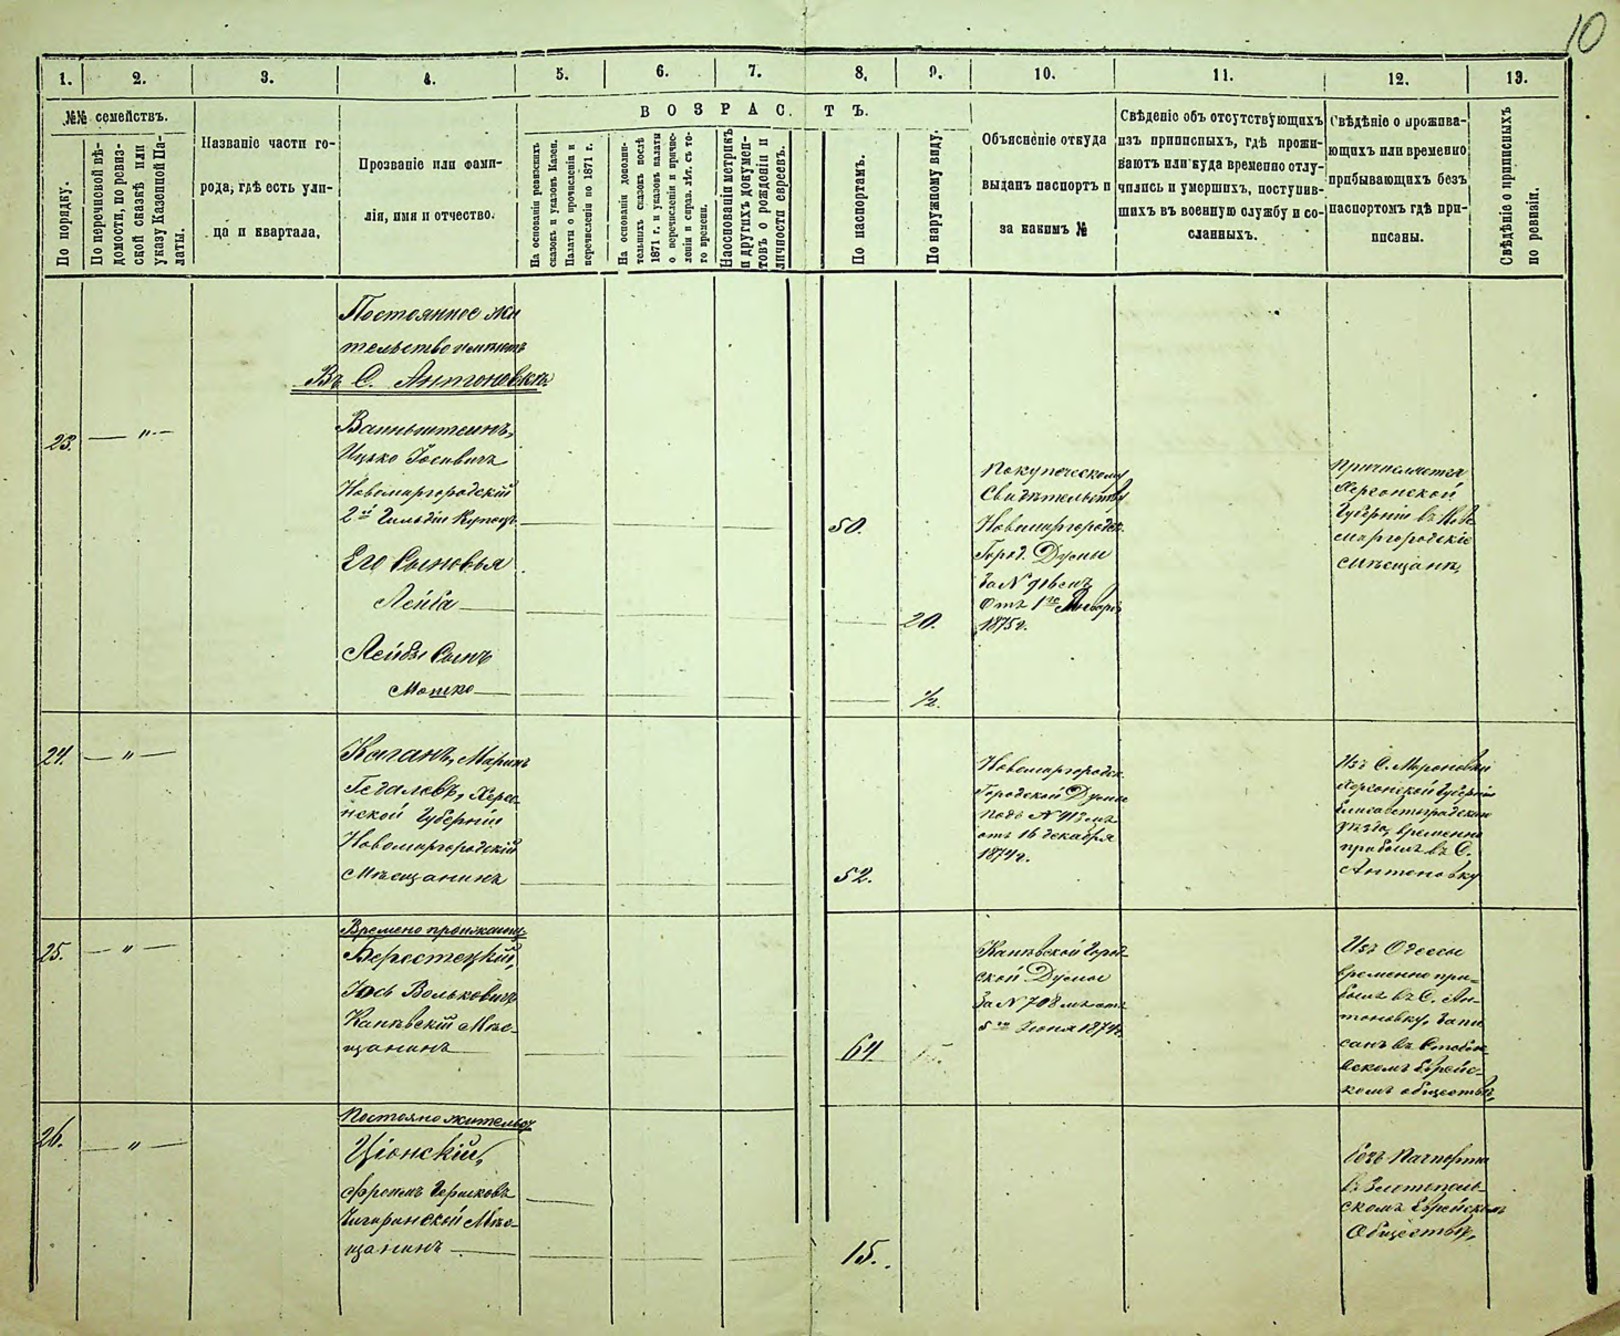 10
1. 2. 3. 4. 5. 6. 7. 8. 9. 10. 11. 12. 13.
№№ семействъ.
По порядку.
По перечновой вѣ-
домости, по ревиз-
ской сказкѣ или
указу Казенной Па-
латы.
Названіе части го-
рода, гдѣ есть ули-
ца и квартала.
Прозваніе или фами-
лія, имя и отчество.
ВОЗРАСТЪ.
На основаніи ревизскихъ
сказокъ и указовъ Казен.
Палаты о причисленіи и
перечисленіи по 1871 г.
На основаніи дополни-
тельныхъ сказокъ послѣ
1871 г. и указовъ палаты
о перечисленіи и причис-
леніи и справ. лѣт. съ то-
го времени.
На основаніи метрикъ
и другихъ докумен-
товъ о рожденіи и
личности евреевъ.
По паспортамъ.
По наружному виду.
Объясненіе откуда
выданъ паспортъ и
за какимъ №
Свѣденіе объ отсутствующихъ
изъ приписныхъ, гдѣ прожи-
ваютъ или куда временно отлу-
чились и умершихъ, поступив-
шихъ въ военную службу и со-
сланныхъ.
Свѣдѣніе о прожива-
ющихъ или временно
прибывающихъ безъ
паспортомъ гдѣ при-
писаны.
Свѣдѣніе о приписныхъ
по ревизіи.
Постоянное жи
тельство имѣютъ
Въ С. Антоновкѣ
23. — " —
Вайнштейнъ,
Ицько Іосивичъ
Новомиргородскій
2й Гильдіи Купецъ
50.
Его Сыновья
Лейба
20.
Лейбы Сынъ
Мошко
1/2
По купеческому
Свидѣтельству
Новомиргородск.
Город. Думы
За №
отъ 1го Января
1875 г.
Причисляется
Херсонской
Губерніи въ Ново
миргородскіе
мѣщане,
24. — " —
Каганъ,
Гедалевъ, Херсо
нской Губерніи
Новомиргородскій
Мѣщанинъ
52.
Новомиргородск.
Городской Думы
подъ №
отъ 16 декабря
1874 г.
Изъ С.
Херсонской Губерніи
Елисаветградскаго
уѣзда, временно
прибылъ въ С.
Антоновку
25. — " —
Времено прожива
Берестецкій,
Іось Вольковичъ
Каневскій Мѣ-
щанинъ
64
Каневской Город-
ской Думы
За № 708мъ отъ
5го Іюня 1874 г.
Изъ Одессы
временно при-
былъ въ С. Ан-
тоновку, Запи
санъ въ
Еврейс-
комъ обществѣ,
26. — " —
Постояно жительст
Ціонскій,
Фроимъ Гершковъ
Чигиринской Мѣ-
щанинъ
15.
безъ Паспорта
въ Златополь-
скомъ Еврейскомъ
Обществѣ,